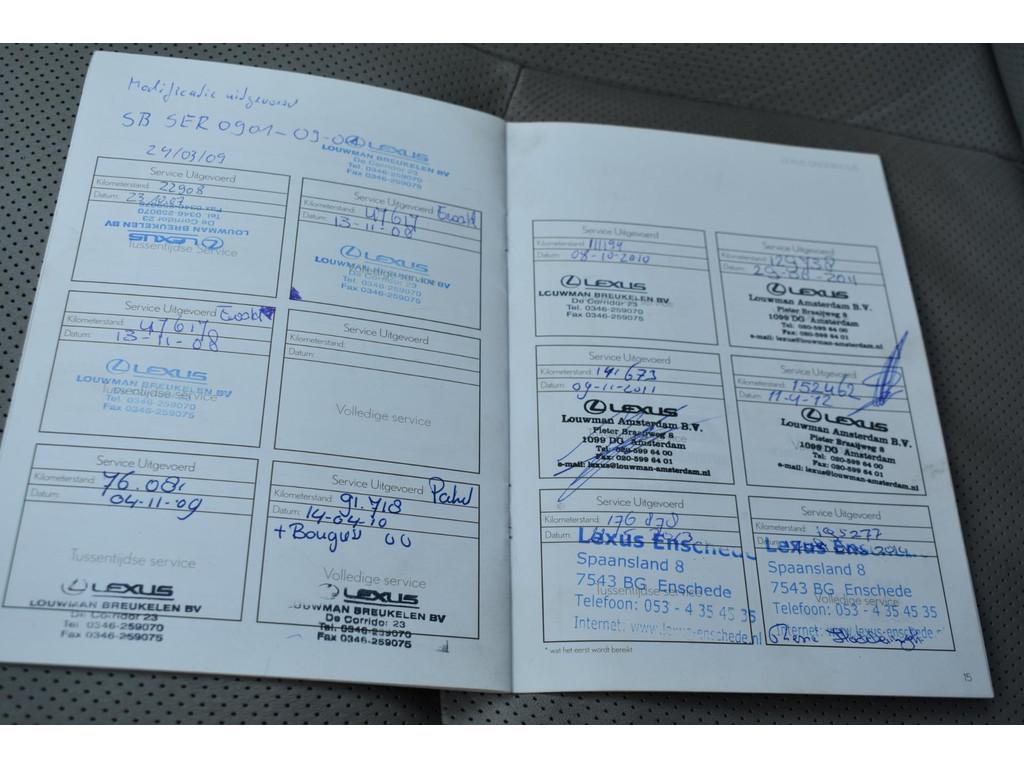 Modificatie uitgevoerd
SB SER 0901-09-0
24/03/09
LEXUS
LOUWMAN BREUKELEN BV
De Corridor 23
Tel. 0346-259070
Fax 0346-259075
Service Uitgevoerd
Kilometerstand: 22908
Datum: 23
Fax 0346-259075
Tel. 0346-259070
De Corridor 23
LOUWMAN BREUKELEN BV
LEXUS
Tussentijdse Service
Service Uitgevoerd
Kilometerstand: 47617
Datum: 13-11-08
LEXUS
LOUWMAN BREUKELEN BV
De Corridor 23
Tel. 0346-259070
Fax 0346-259075
Service Uitgevoerd
Kilometerstand: 47617
Datum: 13-11-08
LEXUS
LOUWMAN BREUKELEN BV
Tussentijdse service
Tel. 0346-259070
Fax 0346-259075
Service Uitgevoerd
Kilometerstand:
Datum:
Volledige service
Service Uitgevoerd
Kilometerstand: 76.081
Datum: 04-11-09
Tussentijdse service
LEXUS
LOUWMAN BREUKELEN BV
De Corridor 23
Tel. 0346-259070
Fax 0346-259075
Service Uitgevoerd
Kilometerstand: 91.718
Datum: 14-04-10
+ Bougies
Volledige service
LEXUS
LOUWMAN BREUKELEN BV
De Corridor 23
Tel. 0346-259070
Fax 0346-259075
Service Uitgevoerd
Kilometerstand: 111194
Datum: 08-10-2010
LEXUS
LOUWMAN BREUKELEN BV
De Corridor 23
Tel. 0346-259070
Fax 0346-259075
Service Uitgevoerd
Kilometerstand: 129738
Datum: 29-04-2011
LEXUS
Louwman Amsterdam B.V.
Pieter Braaijweg 8
1099 DG Amsterdam
Tel: 020-599 64 00
Fax: 020-599 64 01
e-mail: lexus@louwman-amsterdam.nl
Service Uitgevoerd
Kilometerstand: 141673
Datum: 09-11-2011
LEXUS
Louwman Amsterdam B.V.
Pieter Braaijweg 8
1099 DG Amsterdam
Tel: 020-599 64 00
Fax: 020-599 64 01
e-mail: lexus@louwman-amsterdam.nl
Service Uitgevoerd
Kilometerstand: 152462
Datum: 11-4-12
LEXUS
Louwman Amsterdam B.V.
Pieter Braaijweg 8
1099 DG Amsterdam
Tel: 020-599 64 00
Fax: 020-599 64 01
e-mail: lexus@louwman-amsterdam.nl
Service Uitgevoerd
Kilometerstand: 176878
Datum:
Lexus Enschede
Spaansland 8
7543 BG Enschede
Tussentijdse service
Telefoon: 053 - 4 35 45 35
Internet: www.lexus-enschede.nl
Service Uitgevoerd
Kilometerstand: 195277
Datum: 2014
Lexus Ens
Spaansland 8
7543 BG Enschede
Volledige service
Telefoon: 053 - 4 35 45 35
Internet: www.lexus-enschede.nl
* wat het eerst wordt bereikt
15